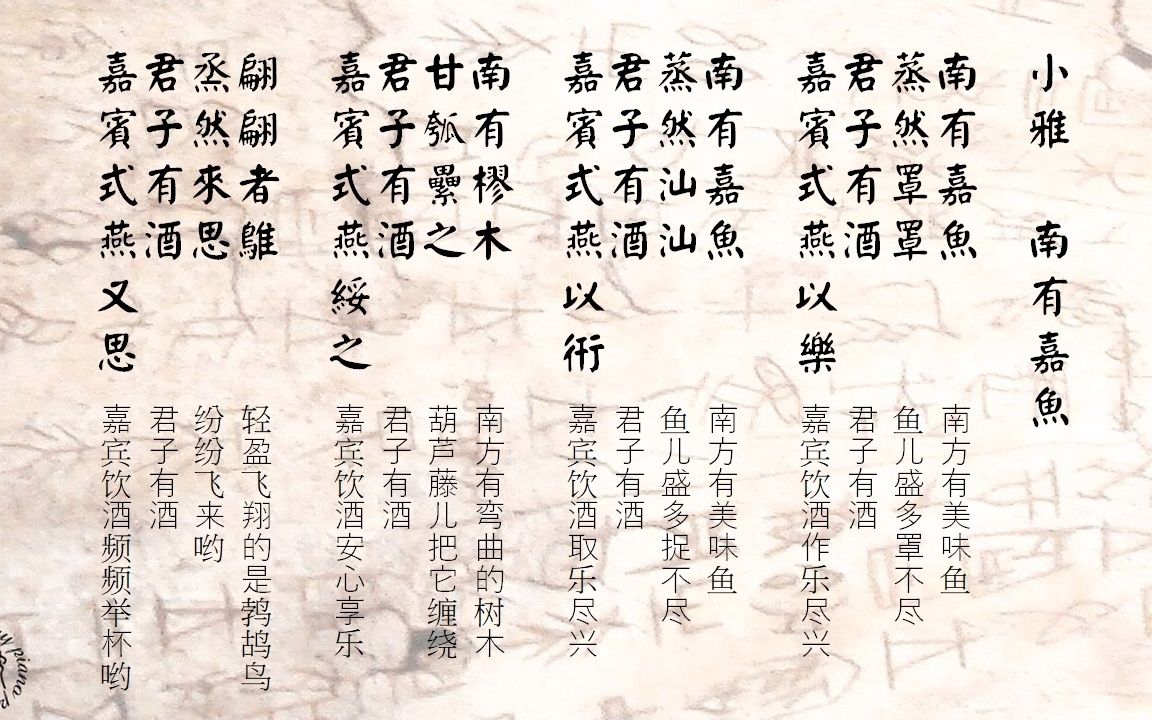 小雅 南有嘉魚
南有嘉魚
蒸然罩罩
君子有酒
嘉賓式燕以樂
南方有美味鱼
鱼儿盛多罩不尽
君子有酒
嘉宾饮酒作乐尽兴
南有嘉魚
蒸然汕汕
君子有酒
嘉賓式燕以衎
南方有美味鱼
鱼儿盛多捉不尽
君子有酒
嘉宾饮酒取乐尽兴
南有樛木
甘瓠纍之
君子有酒
嘉賓式燕綏之
南方有弯曲的树木
葫芦藤儿把它缠绕
君子有酒
嘉宾饮酒安心享乐
翩翩者鵻
烝然來思
君子有酒
嘉賓式燕又思
轻盈飞翔的是鹁鸪鸟
纷纷飞来哟
君子有酒
嘉宾饮酒频频举杯哟
piano